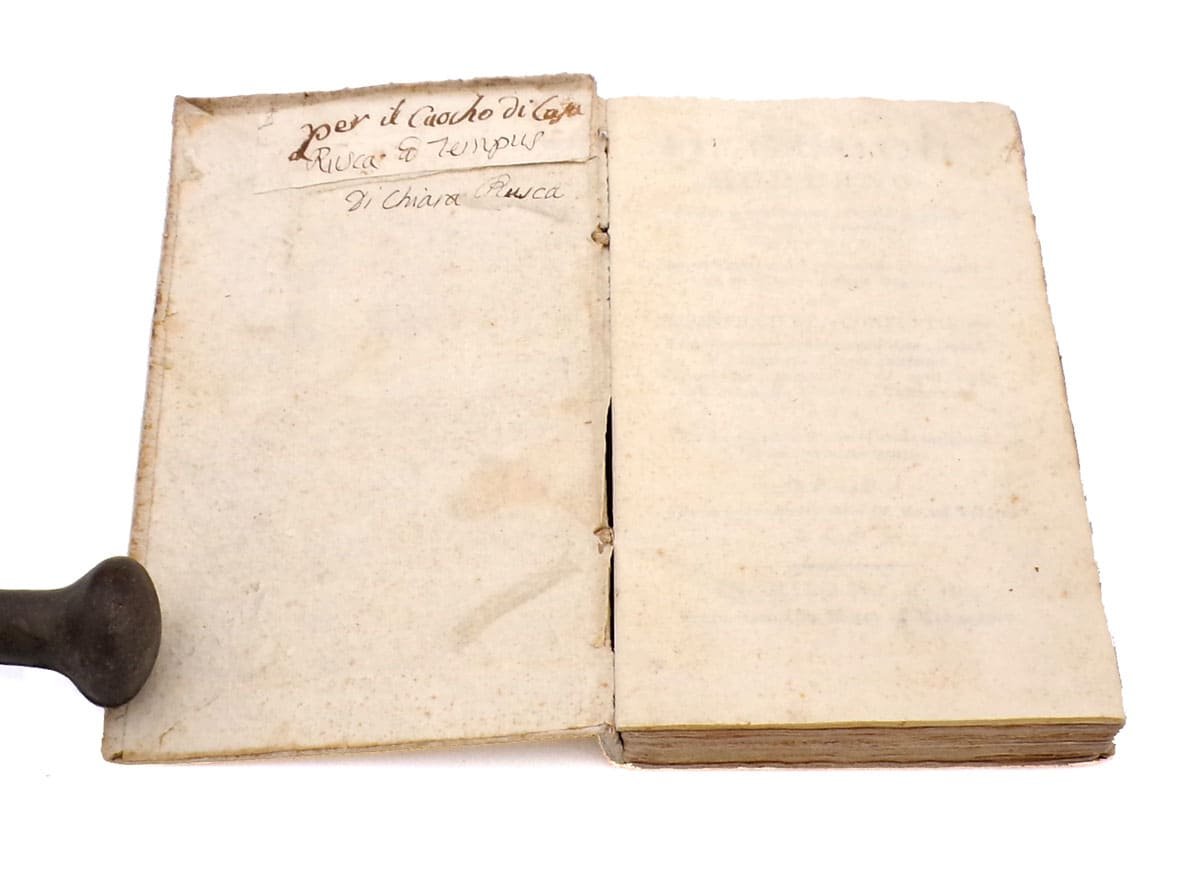 per il Cuocho di Casa
Rusca Tempus
di Chiara Rusca